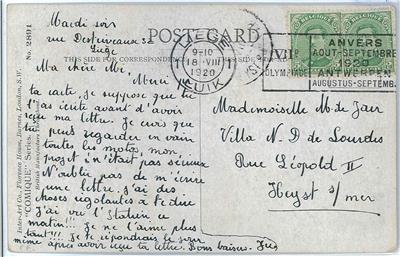 Mardi soir
rue Destriveaux
Liége
Ma chère Mi
Merci
ta carte, je suppose que tu
l'as écrite avant d'avoir
reçu ma lettre. Je crois que
tu peux regarder en vain
toutes les motos, mon
projet n'était pas sérieux
N'oublie pas de m'écrire
une lettre. j'ai des
choses rigolantes à te dire
J'ai vu l'
matin!!! Je ne l'aime plus
tant!!! Je te répondrais le soir
même après avoir reçu ta lettre. Bons baisers.
No. 2891
"COMIQUE" Series.
Inter-Art Co., Florence House, Barnes, London, S.W.
British Manufacture
POST CARD
THIS SIDE FOR CORRESPONDENCE
LIEGE
9-10
18-VIII
1920
LUIK
VIIe
OLYMPIADE
ANVERS
AOUT-SEPTEMBRE
1920
ANTWERPEN
AUGUSTUS-SEPTEMB.
Mademoiselle M. de Jaer
Villa N. D. de Lourdes
Rue Léopold II
Heyst s/mer